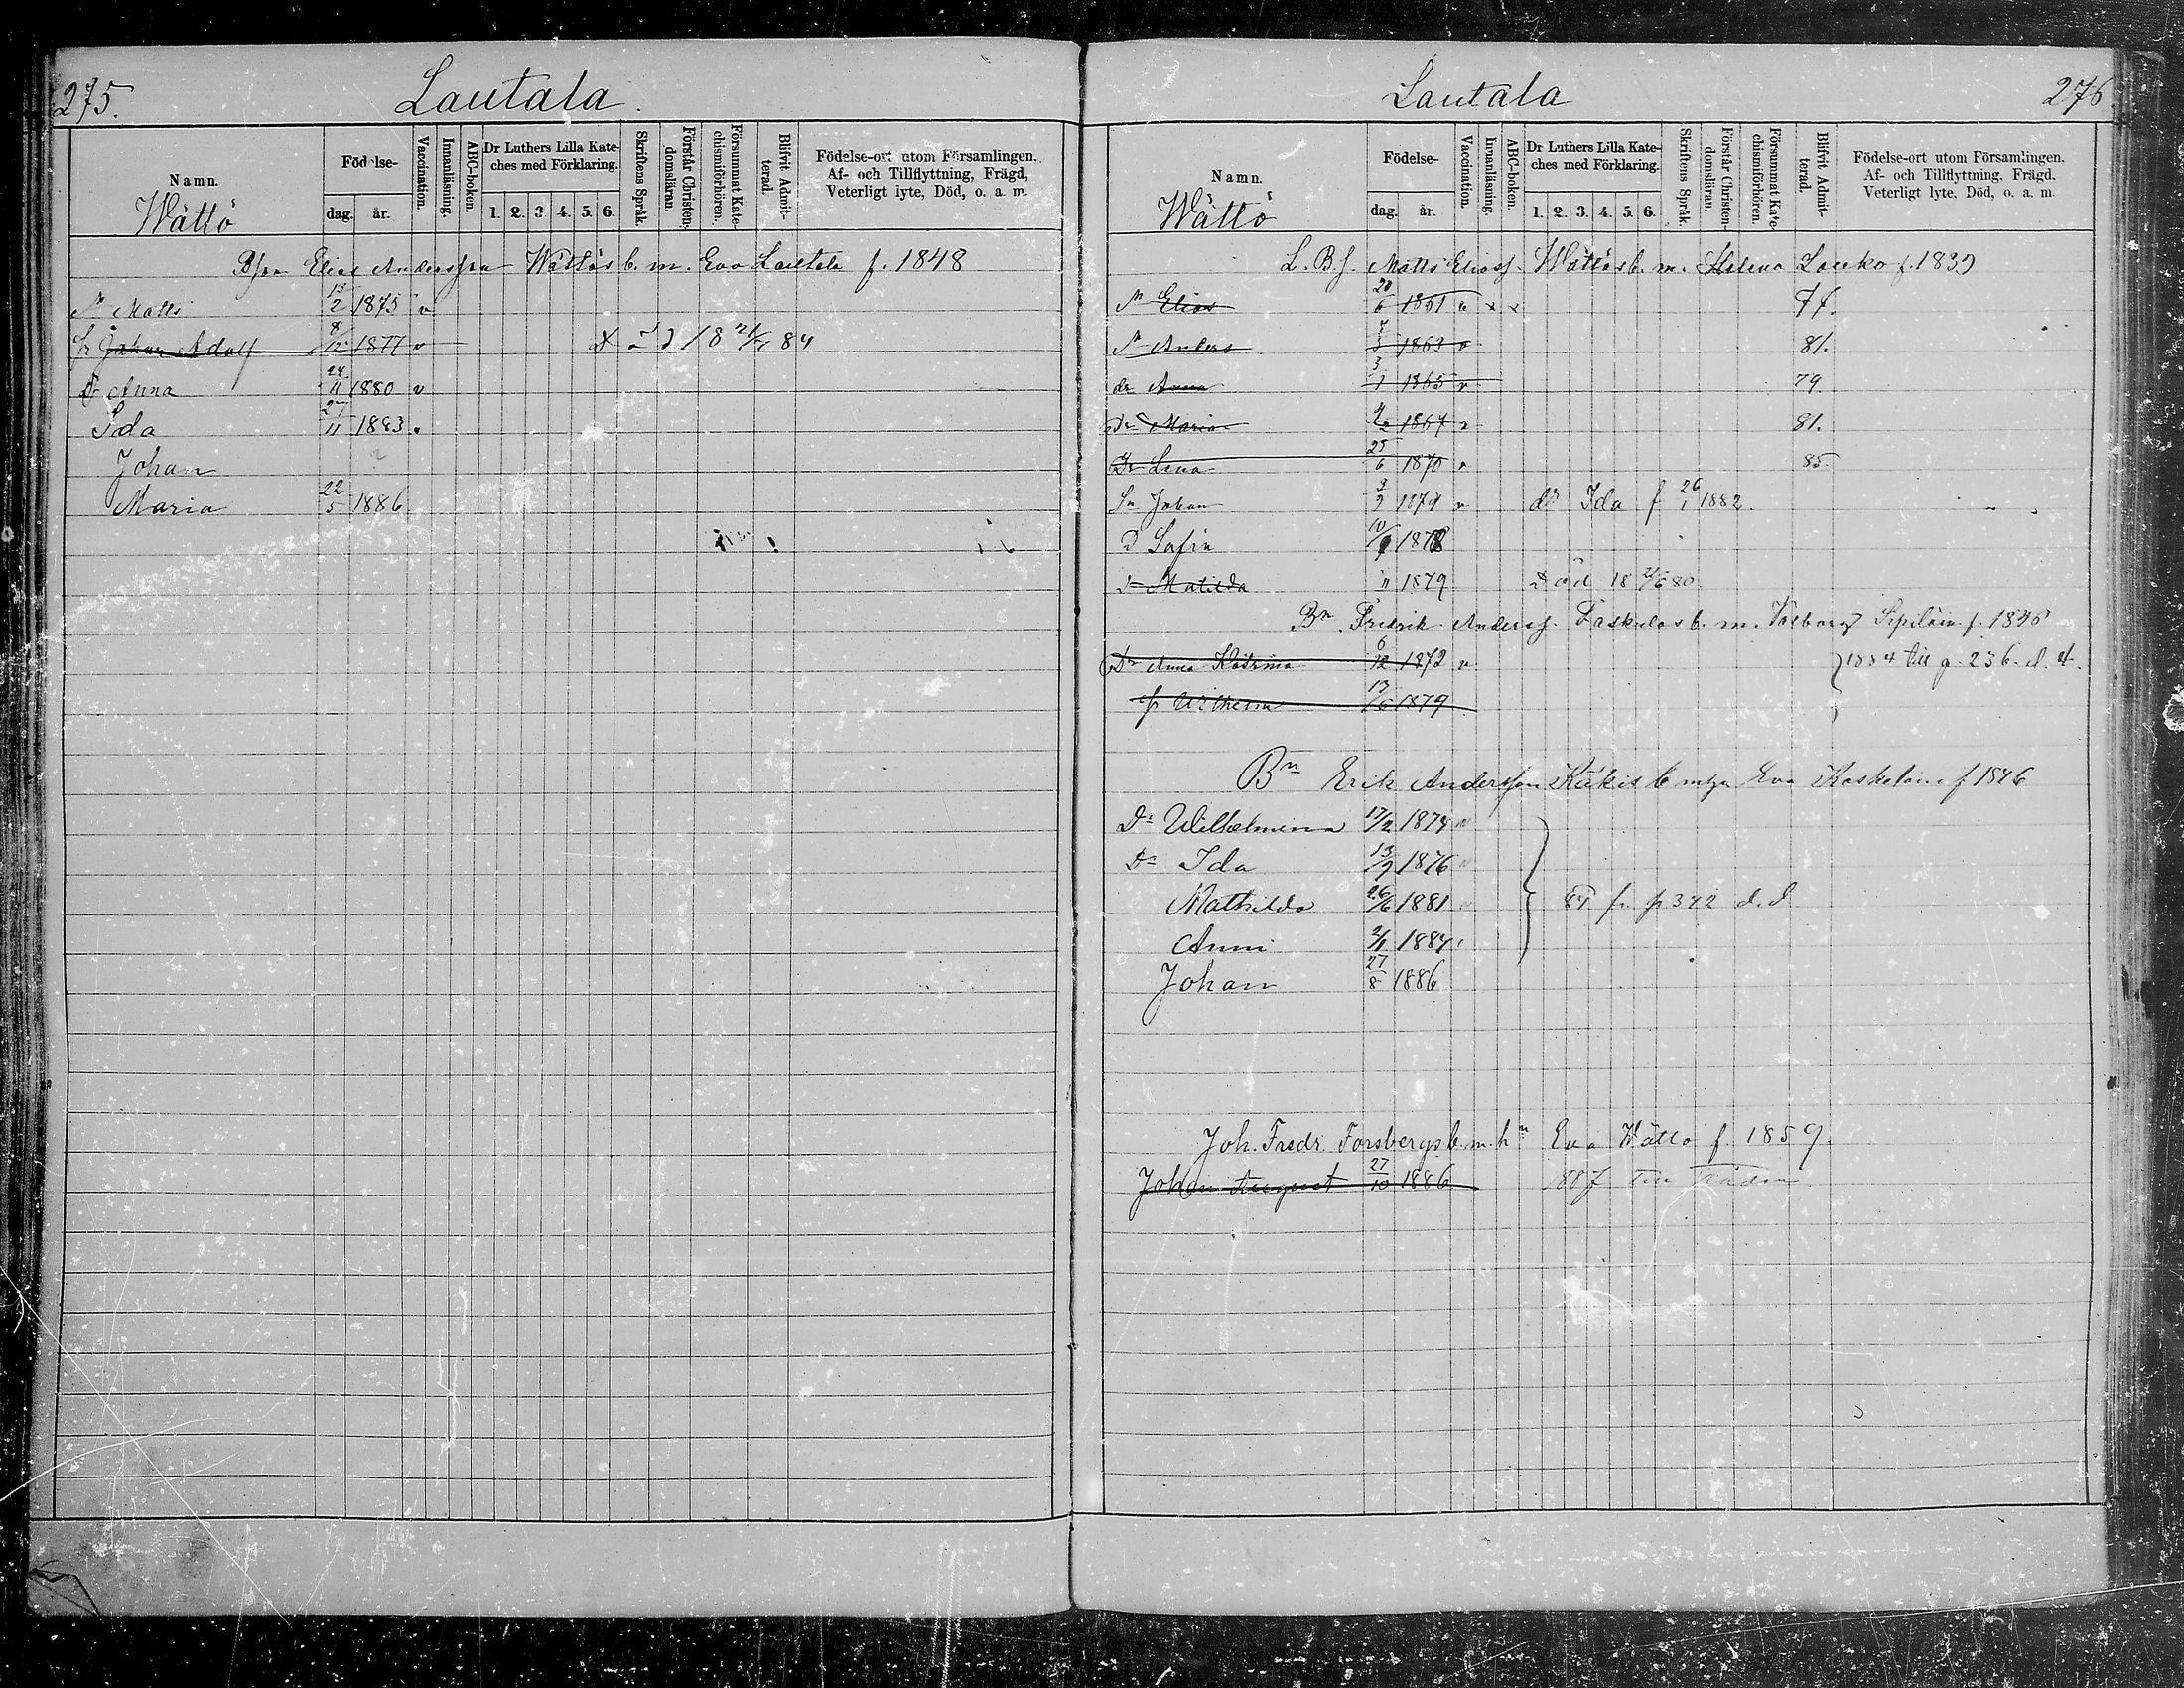 275.
Lautala.
Namn.
Wättö
Födelse-
dag. år.
Vaccination.
Innanläsning.
ABC-boken.
Dr Luthers Lilla Kate-
ches med Förklaring.
1. 2. 3. 4. 5. 6.
Skriftens Språk.
Förstår Christen-
domsläran.
Försummat Kate-
chismiförhören.
Blifvit Admit-
terad.
Födelse-ort utom Församlingen.
Af- och Tillflyttning, Frägd,
Veterligt lyte, Död, o. a. m.
Elias Andersson Wättös b. m. Eva Lautala f. 1848
Matts 13/2 1875 v
Johan Adolf 8/12 1877 v 84
Dr Anna 24/11 1880 v
Ida 27/11 1883
Johan
Maria 22/5 1886
276
Lautala
Namn.
Wättö
Födelse-
dag. år.
Vaccination.
Innanläsning.
ABC-boken.
Dr Luthers Lilla Kate-
ches med Förklaring.
1. 2. 3. 4. 5. 6.
Skriftens Språk.
Förstår Christen-
domsläran.
Försummat Kate-
chismiförhören.
Blifvit Admit-
terad.
Födelse-ort utom Församlingen.
Af- och Tillflyttning, Frägd,
Veterligt lyte, Död, o. a. m.
L. B. f. Matts Eliass. Wättös b. m. Helena Louko f. 1839
Elias 20/6 1861 v x x 77.
Anders 7/3 1863 v 81.
dr Anna 3/1 1865 v 79
Dr Maria 4/2 1867 v 81.
Dr Lena 25/6 1870 v 85
Sn Johan 3/9 1874 v dr Ida f 26/1 1882.
D Safia 10/9 1878
Matilda 11 1879 Död 18 /6 80
Bn Fredrik Anderss. b. m. Valborg f. 1836
Dr Anna Katrina 6/12 1872 v 1884 till p. 236. d. d.
Wilhelm 13/6 1879
Bn Erik Andersson Käkis b m Eva f 1846
Dr Wilhelmina 17/2 1874 v
Dr Ida 13/9 1876 v
Mathilda 26/6 1881
84 fr p 342 d. d
Anni 2/1 1884
Johan 27/8 1886
Joh. Fredr. Forsbergs b. m. h Eva Wättö f. 1859.
Johan August 27/10 1886 1887 till